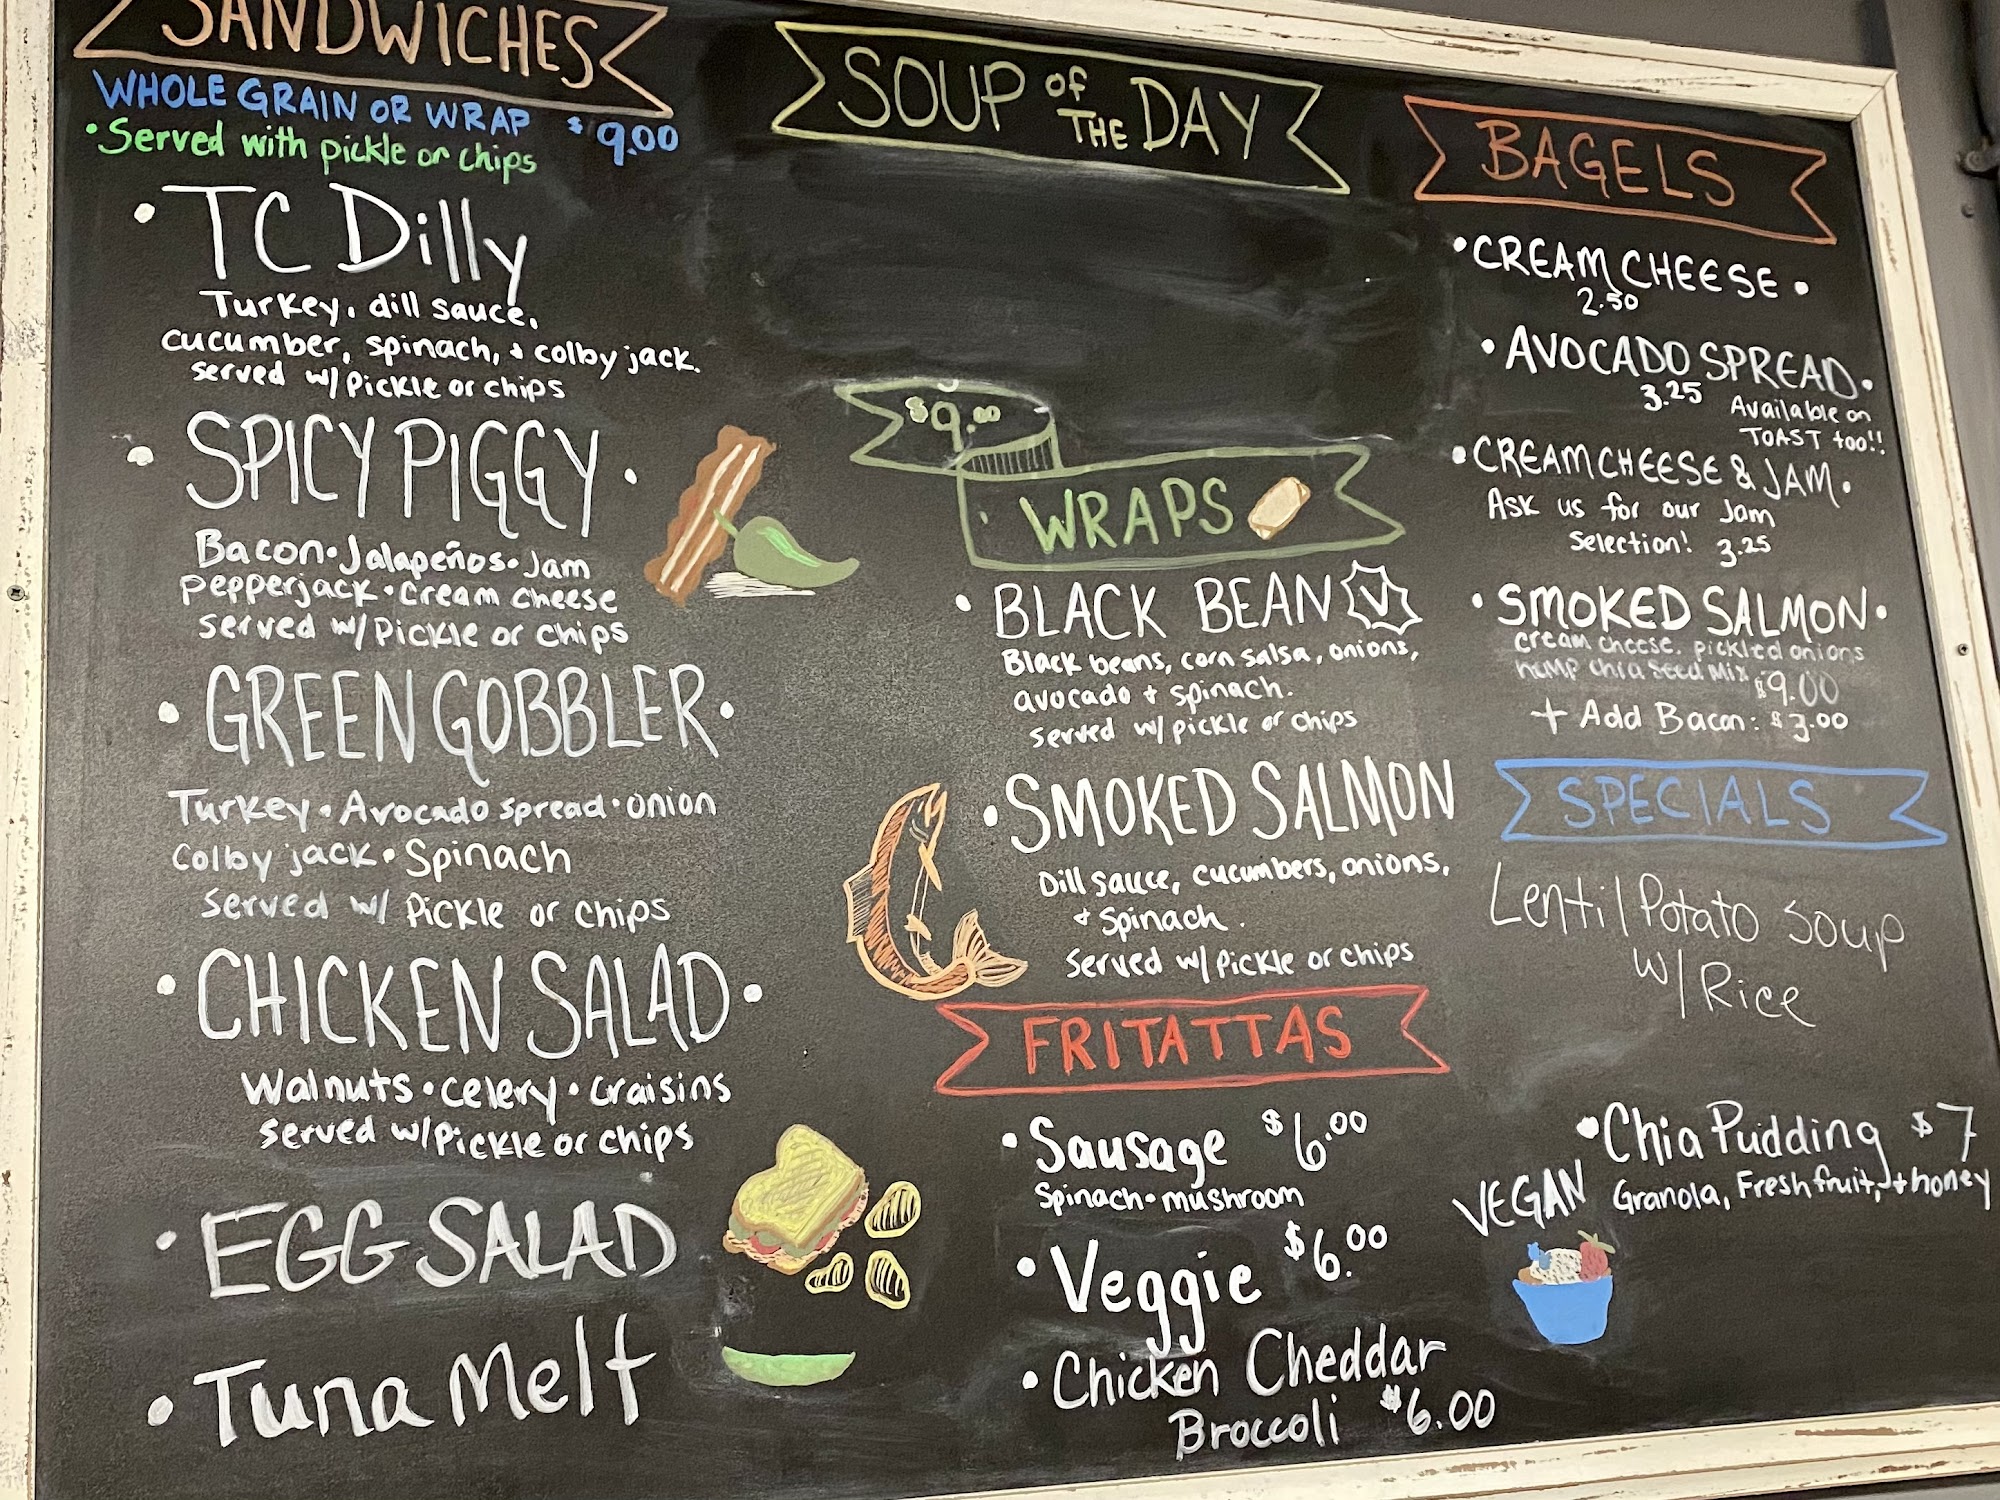 SANDWICHES
WHOLE GRAIN OR WRAP $9.00
• Served with pickle or chips
• TC Dilly
Turkey, dill sauce,
cucumber, spinach, + colby jack.
served w/ pickle or chips
• SPICY PIGGY •
Bacon • Jalapeños • Jam
Pepperjack • cream cheese
served w/ pickle or chips
• GREEN GOBBLER •
Turkey • Avocado spread • onion
Colby jack • Spinach
served w/ pickle or chips
• CHICKEN SALAD •
Walnuts • celery • craisins
served w/ pickle or chips
• EGG SALAD
• Tuna Melt
SOUP OF THE DAY
$9.00
WRAPS
• BLACK BEAN V
Black beans, corn salsa, onions,
avocado + spinach.
served w/ pickle or chips
• SMOKED SALMON
Dill sauce, cucumbers, onions,
+ spinach.
served w/ pickle or chips
FRITATTAS
• Sausage $6.00
Spinach • mushroom
• Veggie $6.00
• Chicken Cheddar
Broccoli $6.00
BAGELS
• CREAM CHEESE •
2.50
• AVOCADO SPREAD •
3.25 Available on
TOAST too!!
• CREAM CHEESE & JAM •
Ask us for our Jam
selection! 3.25
• SMOKED SALMON •
cream cheese, pickled onions
hemp chia seed mix $9.00
+ Add Bacon: $3.00
SPECIALS
Lentil Potato Soup
w/ Rice
• Chia Pudding $7
VEGAN Granola, Fresh fruit, + honey